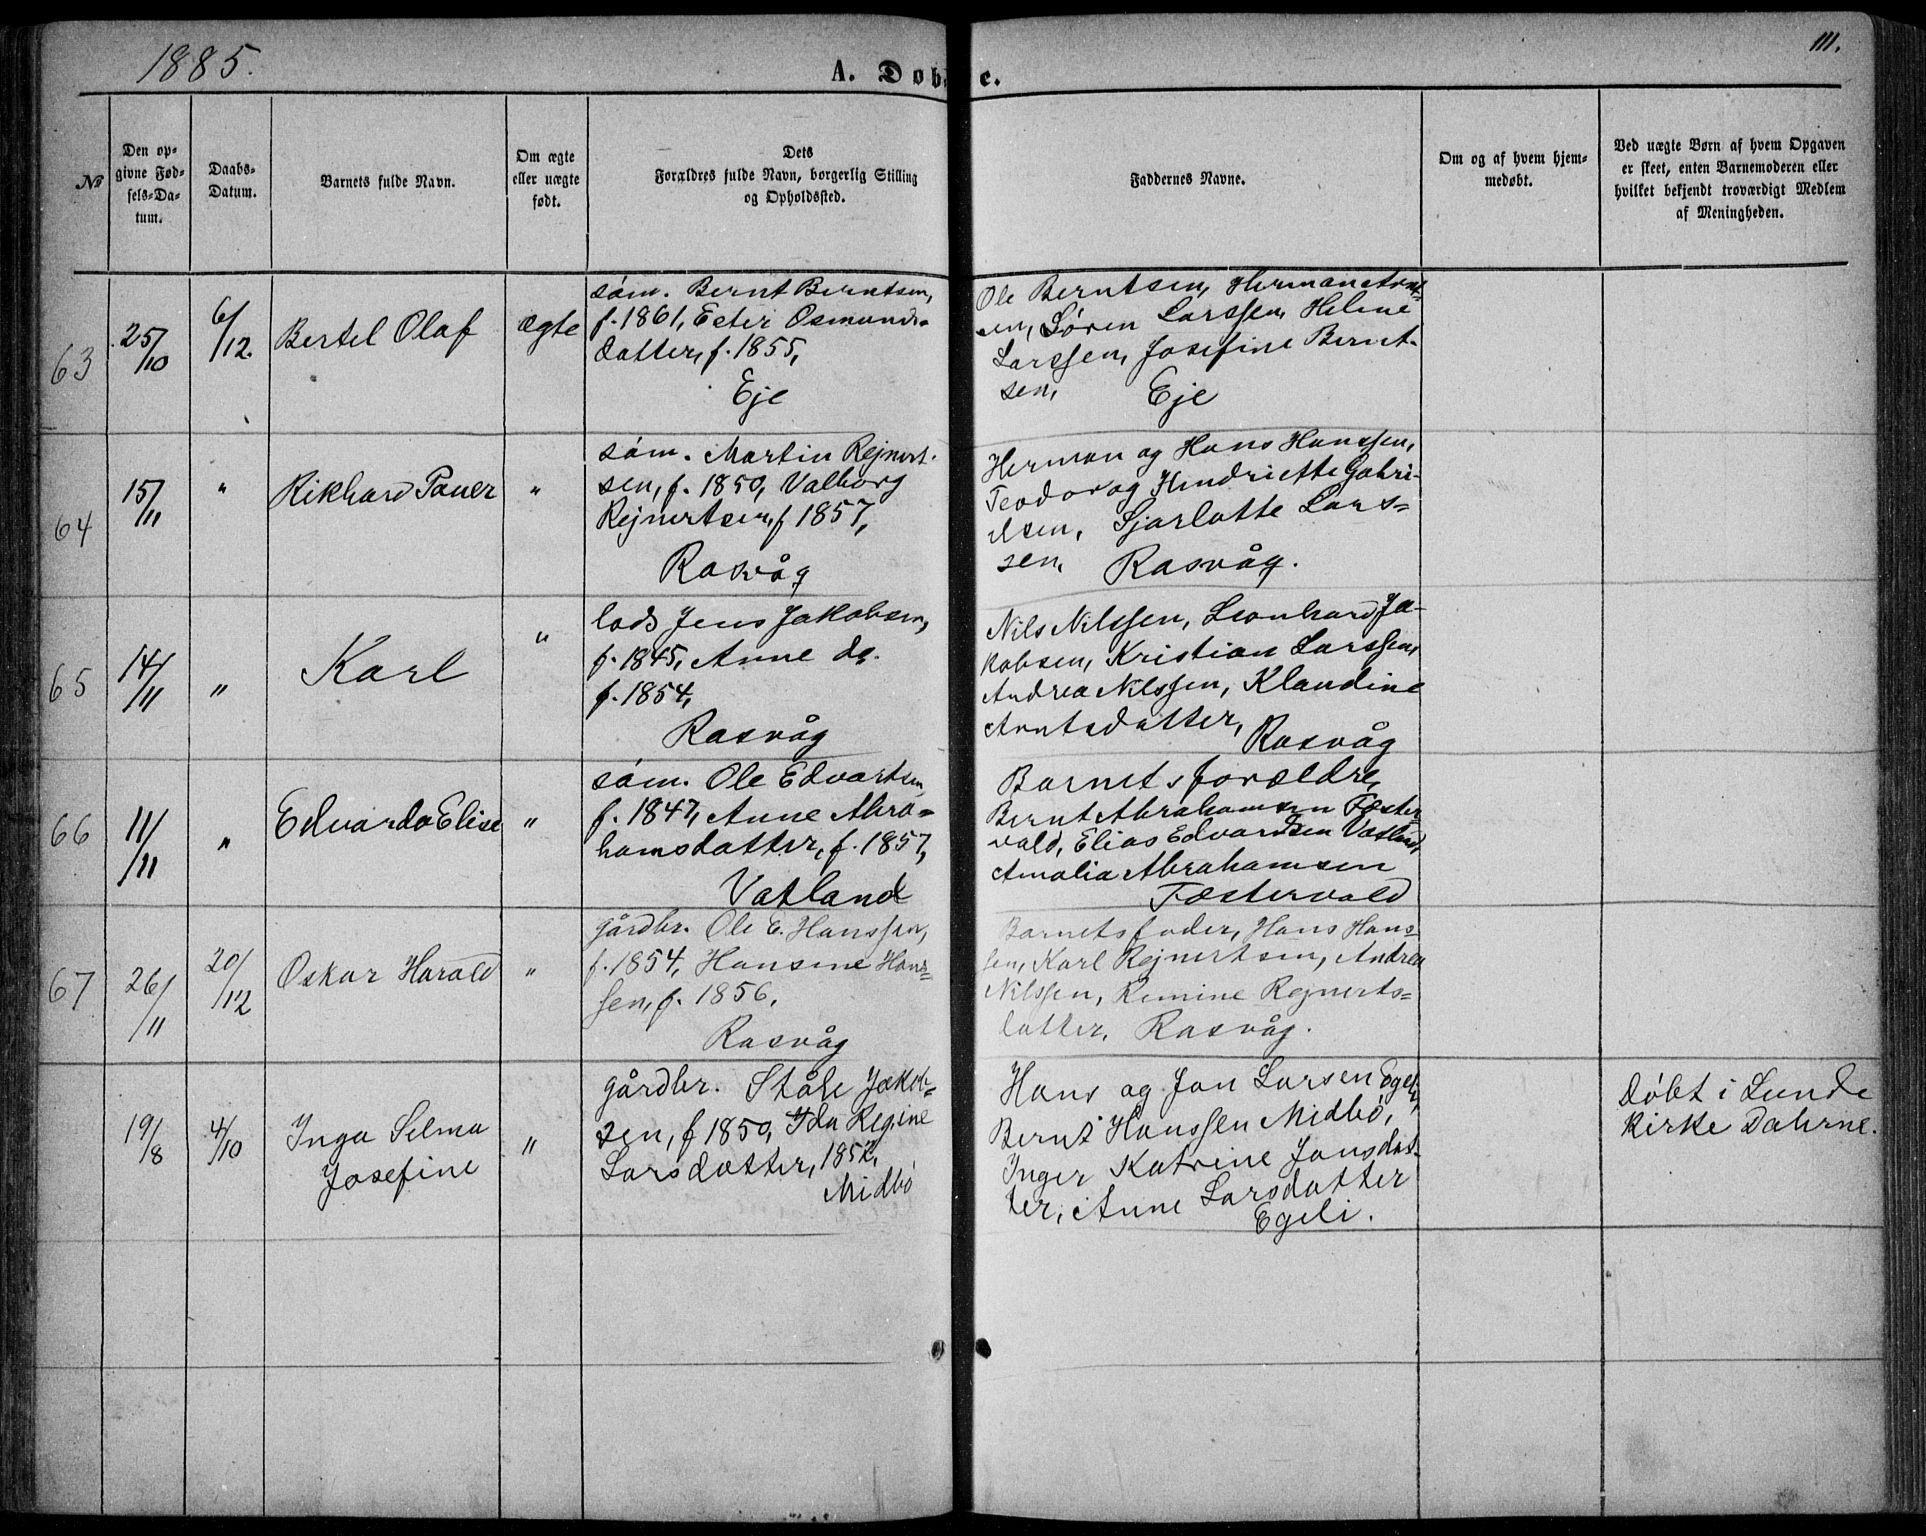 1885.
A. Døb
e.
111.
№
Den op-
givne Fød-
sels-Da-
tum.
Daabs-
Datum.
Barnets fulde Navn.
Om ægte
eller uægte
født.
Dets
Forældres fulde Navn, borgerlig Stilling
og Opholdssted.
Faddernes Navne.
Om og af hvem hjem-
medøbt.
Ved uægte Børn af hvem Opgaven
er skeet, enten Barnemoderen eller
hvilket bekjendt troværdigt Medlem
af Meningheden.
63
25/10
6/12.
Bertel Olaf
ægte
søm. Bernt Berntsen,
f. 1861, Ester Osmunds-
datter, f. 1855,
Eje
Ole Berntsen, Herman
sen, Søren Larssen, Helene
Larssen, Josefine Bernt-
sen, Eje
64
15/11
"
Rikhard Pauer
"
søm. Martin Rejnert-
sen, f. 1850, Valborg
Rejnertsen, f 1857,
Rasvåg
Herman og Hans Hanssen,
Teodor og Hendriette Gabri-
elsen, Sjarlotte Lars-
sen, Rasvåg.
65
14/11
"
Karl
"
lods Jens Jakobsen,
f. 1845, Anne do.
f. 1854,
Rasvåg
Nils Nilssen, Leonhard Ja-
kobsen, Kristian Larssen,
Andrea Nilssen, Klaudine
Arntsdatter,
Rasvåg
66
11/11
"
Edvarda Elise
"
søm. Ole Edvartsen,
f. 1847, Anne Abra-
hamsdatter, f. 1857,
Vatland
Barnets forældre,
Bernt Abrahamsen Fæster-
vald, Elias Edvardsen Vatland,
Amalia Abrahamsen
Fæstervald
67
26/11
20/12
Oskar Harald
"
gårdbr. Ole E. Hanssen,
f. 1854, Hansine Hans-
sen, f. 1856.
Rasvåg
Barnets fader, Hans Hans-
sen, Karl Rejnertsen, Andrea
Nilssen, Remine Rejnerts-
datter, Rasvåg.
19/8
4/10
Inga Selma
Josefine
"
gårdbr. Ståle Jakob-
sen, f 1850, Ida Regine
Larsdatter, 1852,
Midbø
Hans og Jan Larsen Egeli,
Bernt Hanssen Midbø,
Inger Katrine Jansdat-
ter, Anne Larsdatter
Egeli.
Døbt i Lunde
kirke Dalerne.